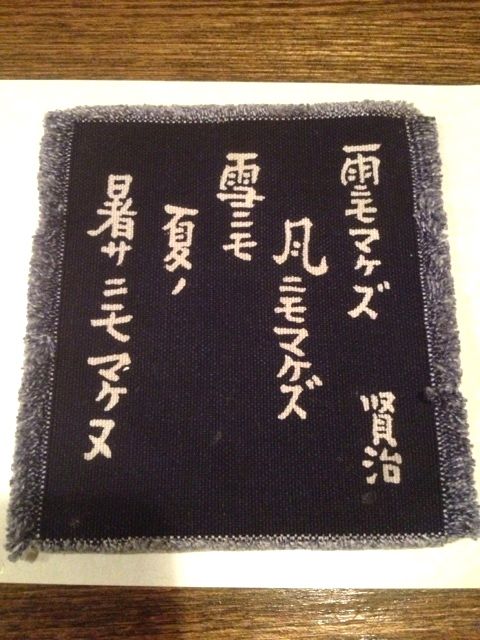 雨ニモマケズ
賢治
凡ニモマケズ
雪ニモ
夏ノ
暑サニモマケヌ